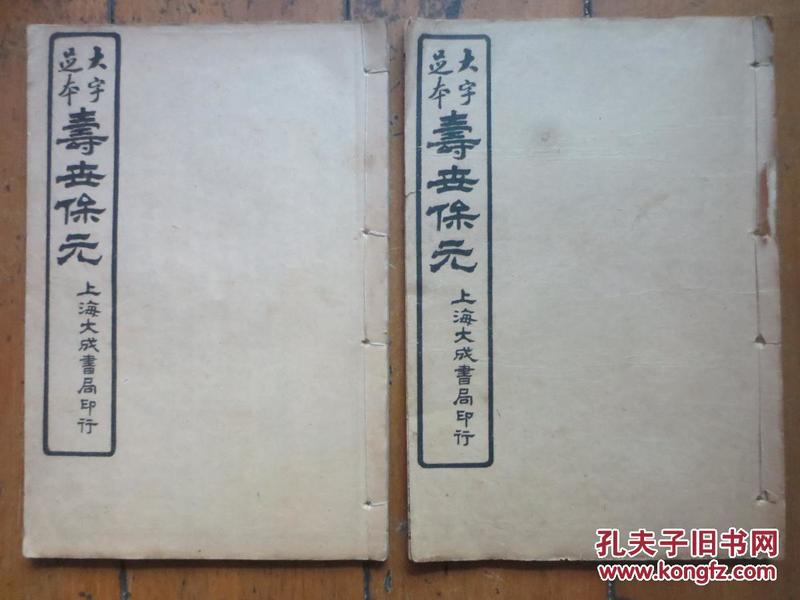 大字
足本
壽世保元
上海大成書局印行
大字
足本
壽世保元
上海大成書局印行
孔夫子旧书网
www.kongfz.com